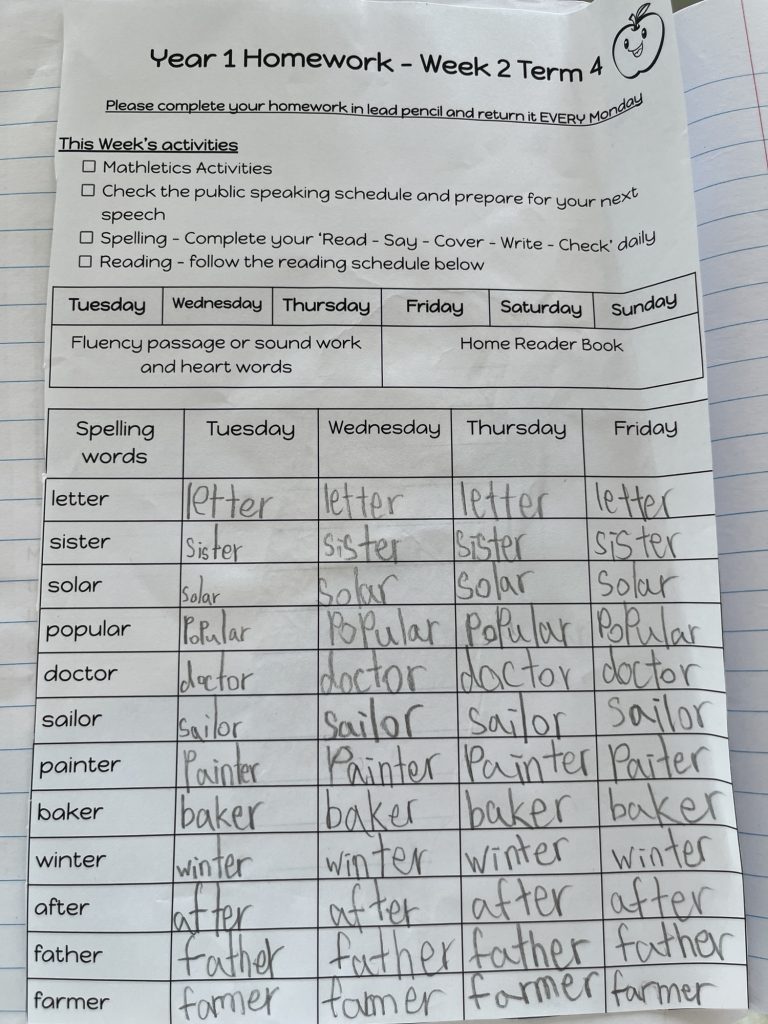 Year 1 Homework - Week 2 Term 4
Please complete your homework in lead pencil and return it EVERY Monday
This Week's activities
☐ Mathletics Activities
☐ Check the public speaking schedule and prepare for your next
speech
☐ Spelling - Complete your 'Read - Say - Cover - Write - Check' daily
☐ Reading - follow the reading schedule below
Tuesday Wednesday Thursday Friday Saturday Sunday
Fluency passage or sound work Home Reader Book
and heart words
Spelling Tuesday Wednesday Thursday Friday
words
letter letter letter letter letter
sister sister sister sister sister
solar solar solar solar solar
popular PoPular PoPular PoPular PoPular
doctor doctor doctor doctor doctor
sailor sailor sailor sailor sailor
painter Painter Painter Painter Paiter
baker baker baker baker baker
winter winter winter winter winter
after after after after after
father father father father father
farmer farmer famer farmer farmer